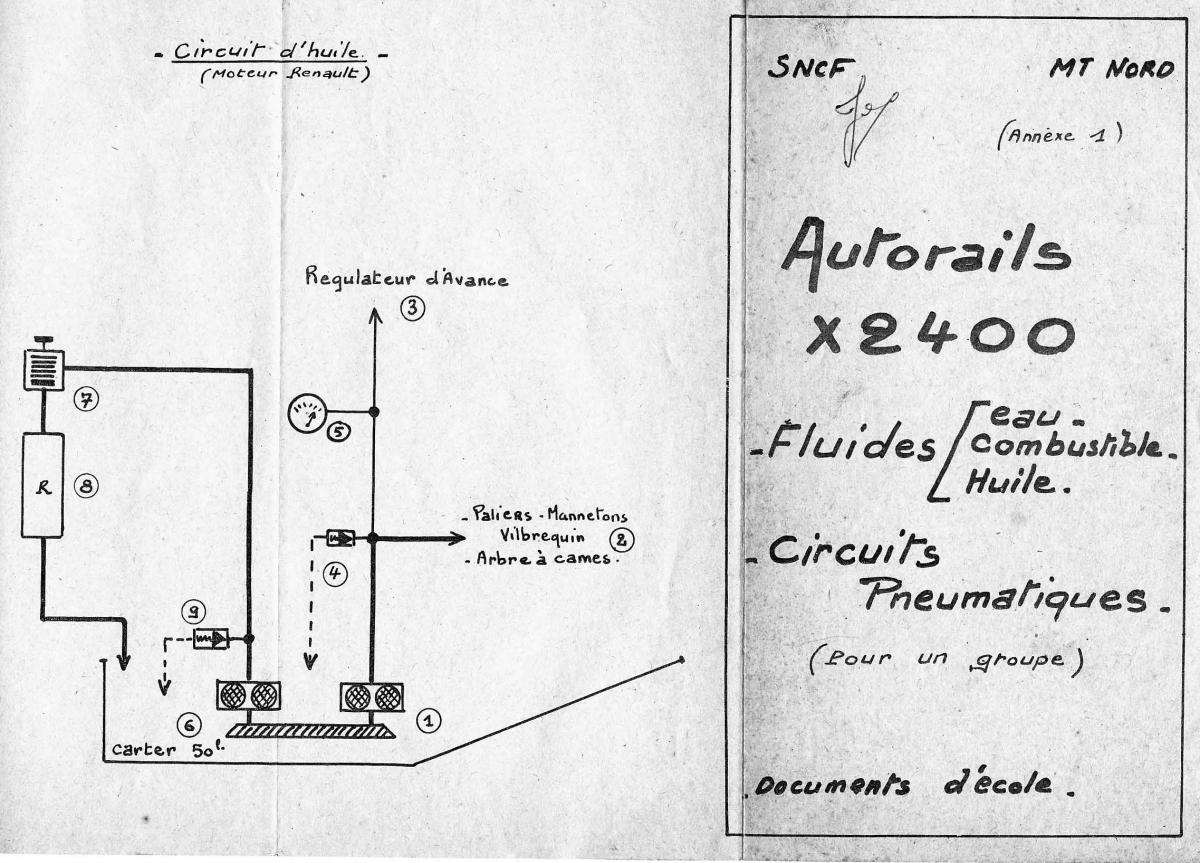 - Circuit d'huile. -
(Moteur Renault)
Regulateur d'Avance
3
7
5
R
8
- Paliers - Mannetons
Vilbrequin
2
- Arbre à cames.
4
9
6
1
Carter 50l.
SNCF
MT NORD
(Annèxe 1)
Autorails
X2400
- Fluides
eau -
Combustible.
Huile.
- Circuits
Pneumatiques.
(Pour un groupe)
Documents d'école.